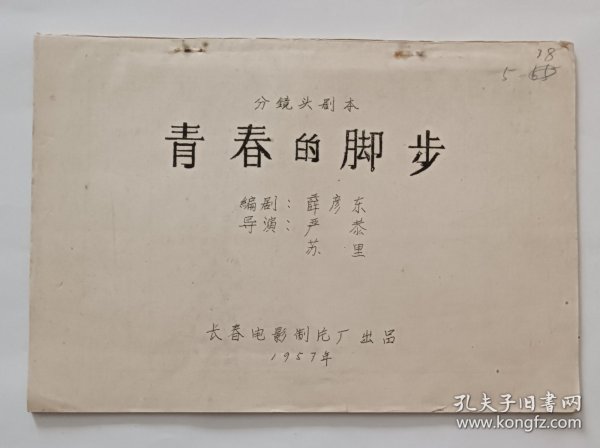 18
分鏡头剧本
青春的脚步
编剧：薛彦东
导演：严恭
苏里
长春电影制片厂出品
1957年
孔夫子旧书网
www.kongfz.com